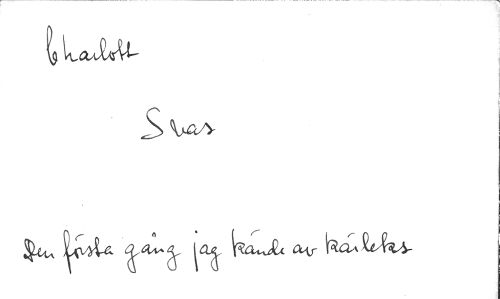 Charlott
Svas
Den första gång jag kände av kärleks